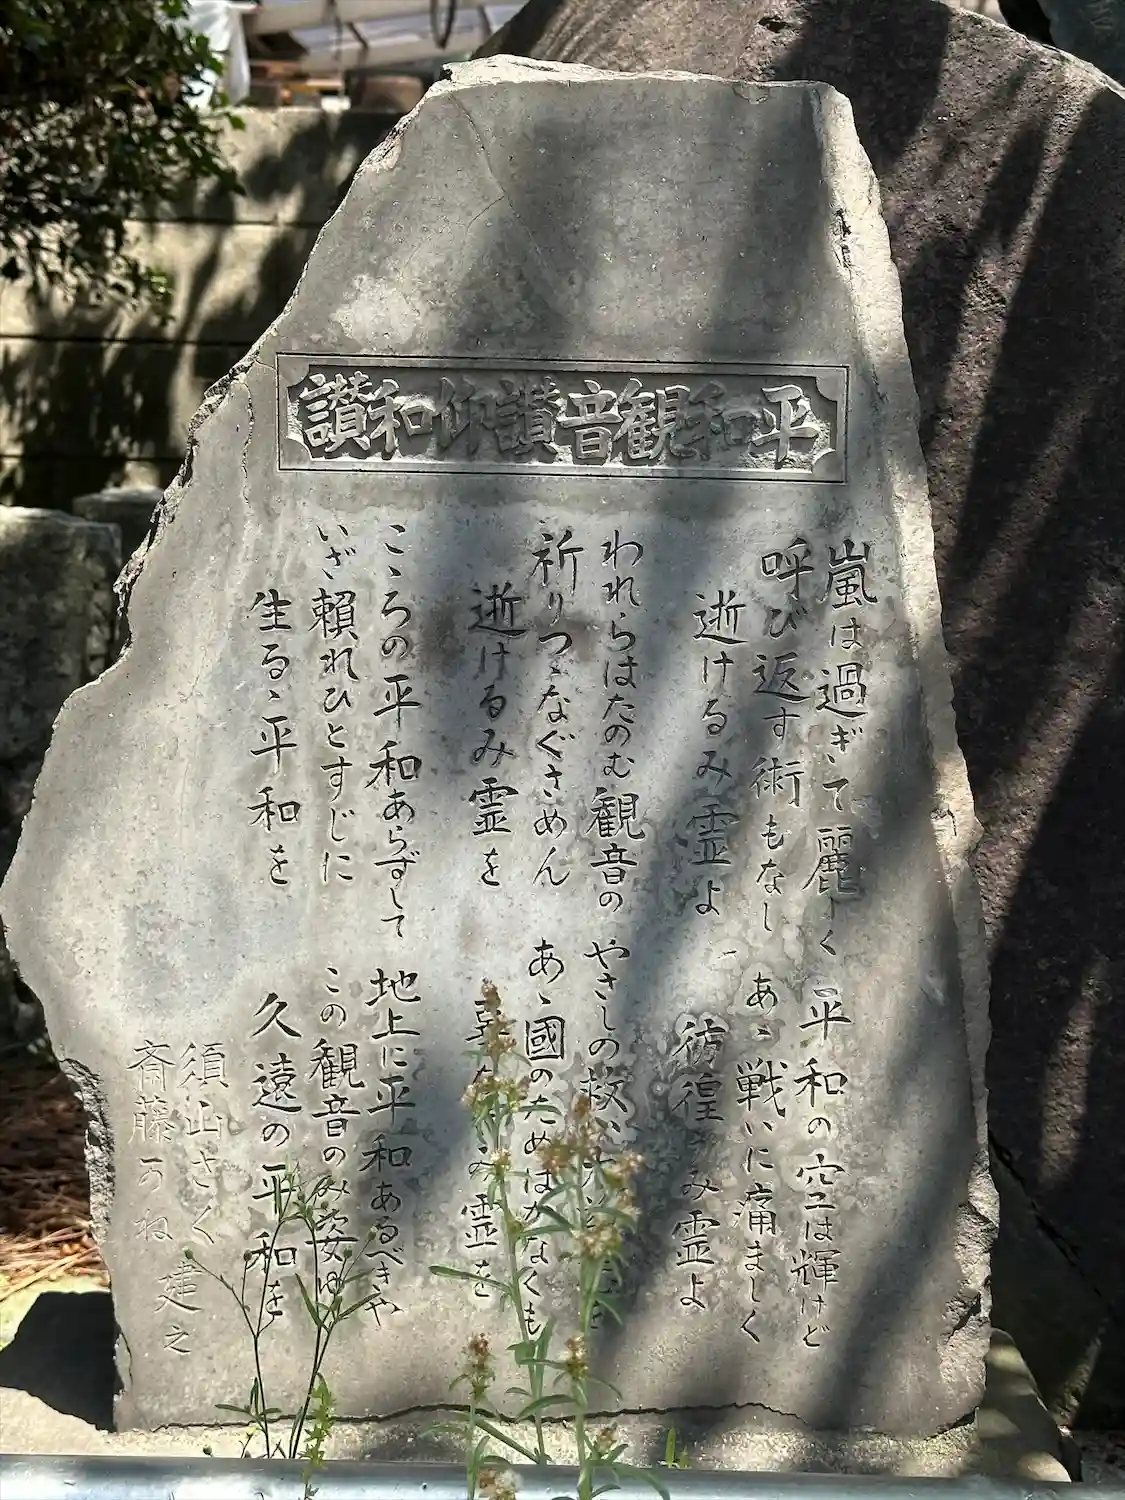 平和観音讃仰和讃
嵐は過ぎて麗しく 平和の空は輝けど
呼び返す術もなし あゝ戦いに痛ましく
逝けるみ霊よ 彷徨うみ霊よ
われらはたのむ観音の やさしの救い
祈りつゝなぐさめん あゝ國のためはかなくも
逝けるみ霊を み霊を
こゝろの平和あらずして 地上に平和あるべきや
いざ頼れひとすじに この観音のみ姿
生るゝ平和を 久遠の平和を
須山さく
斎藤かね 建之